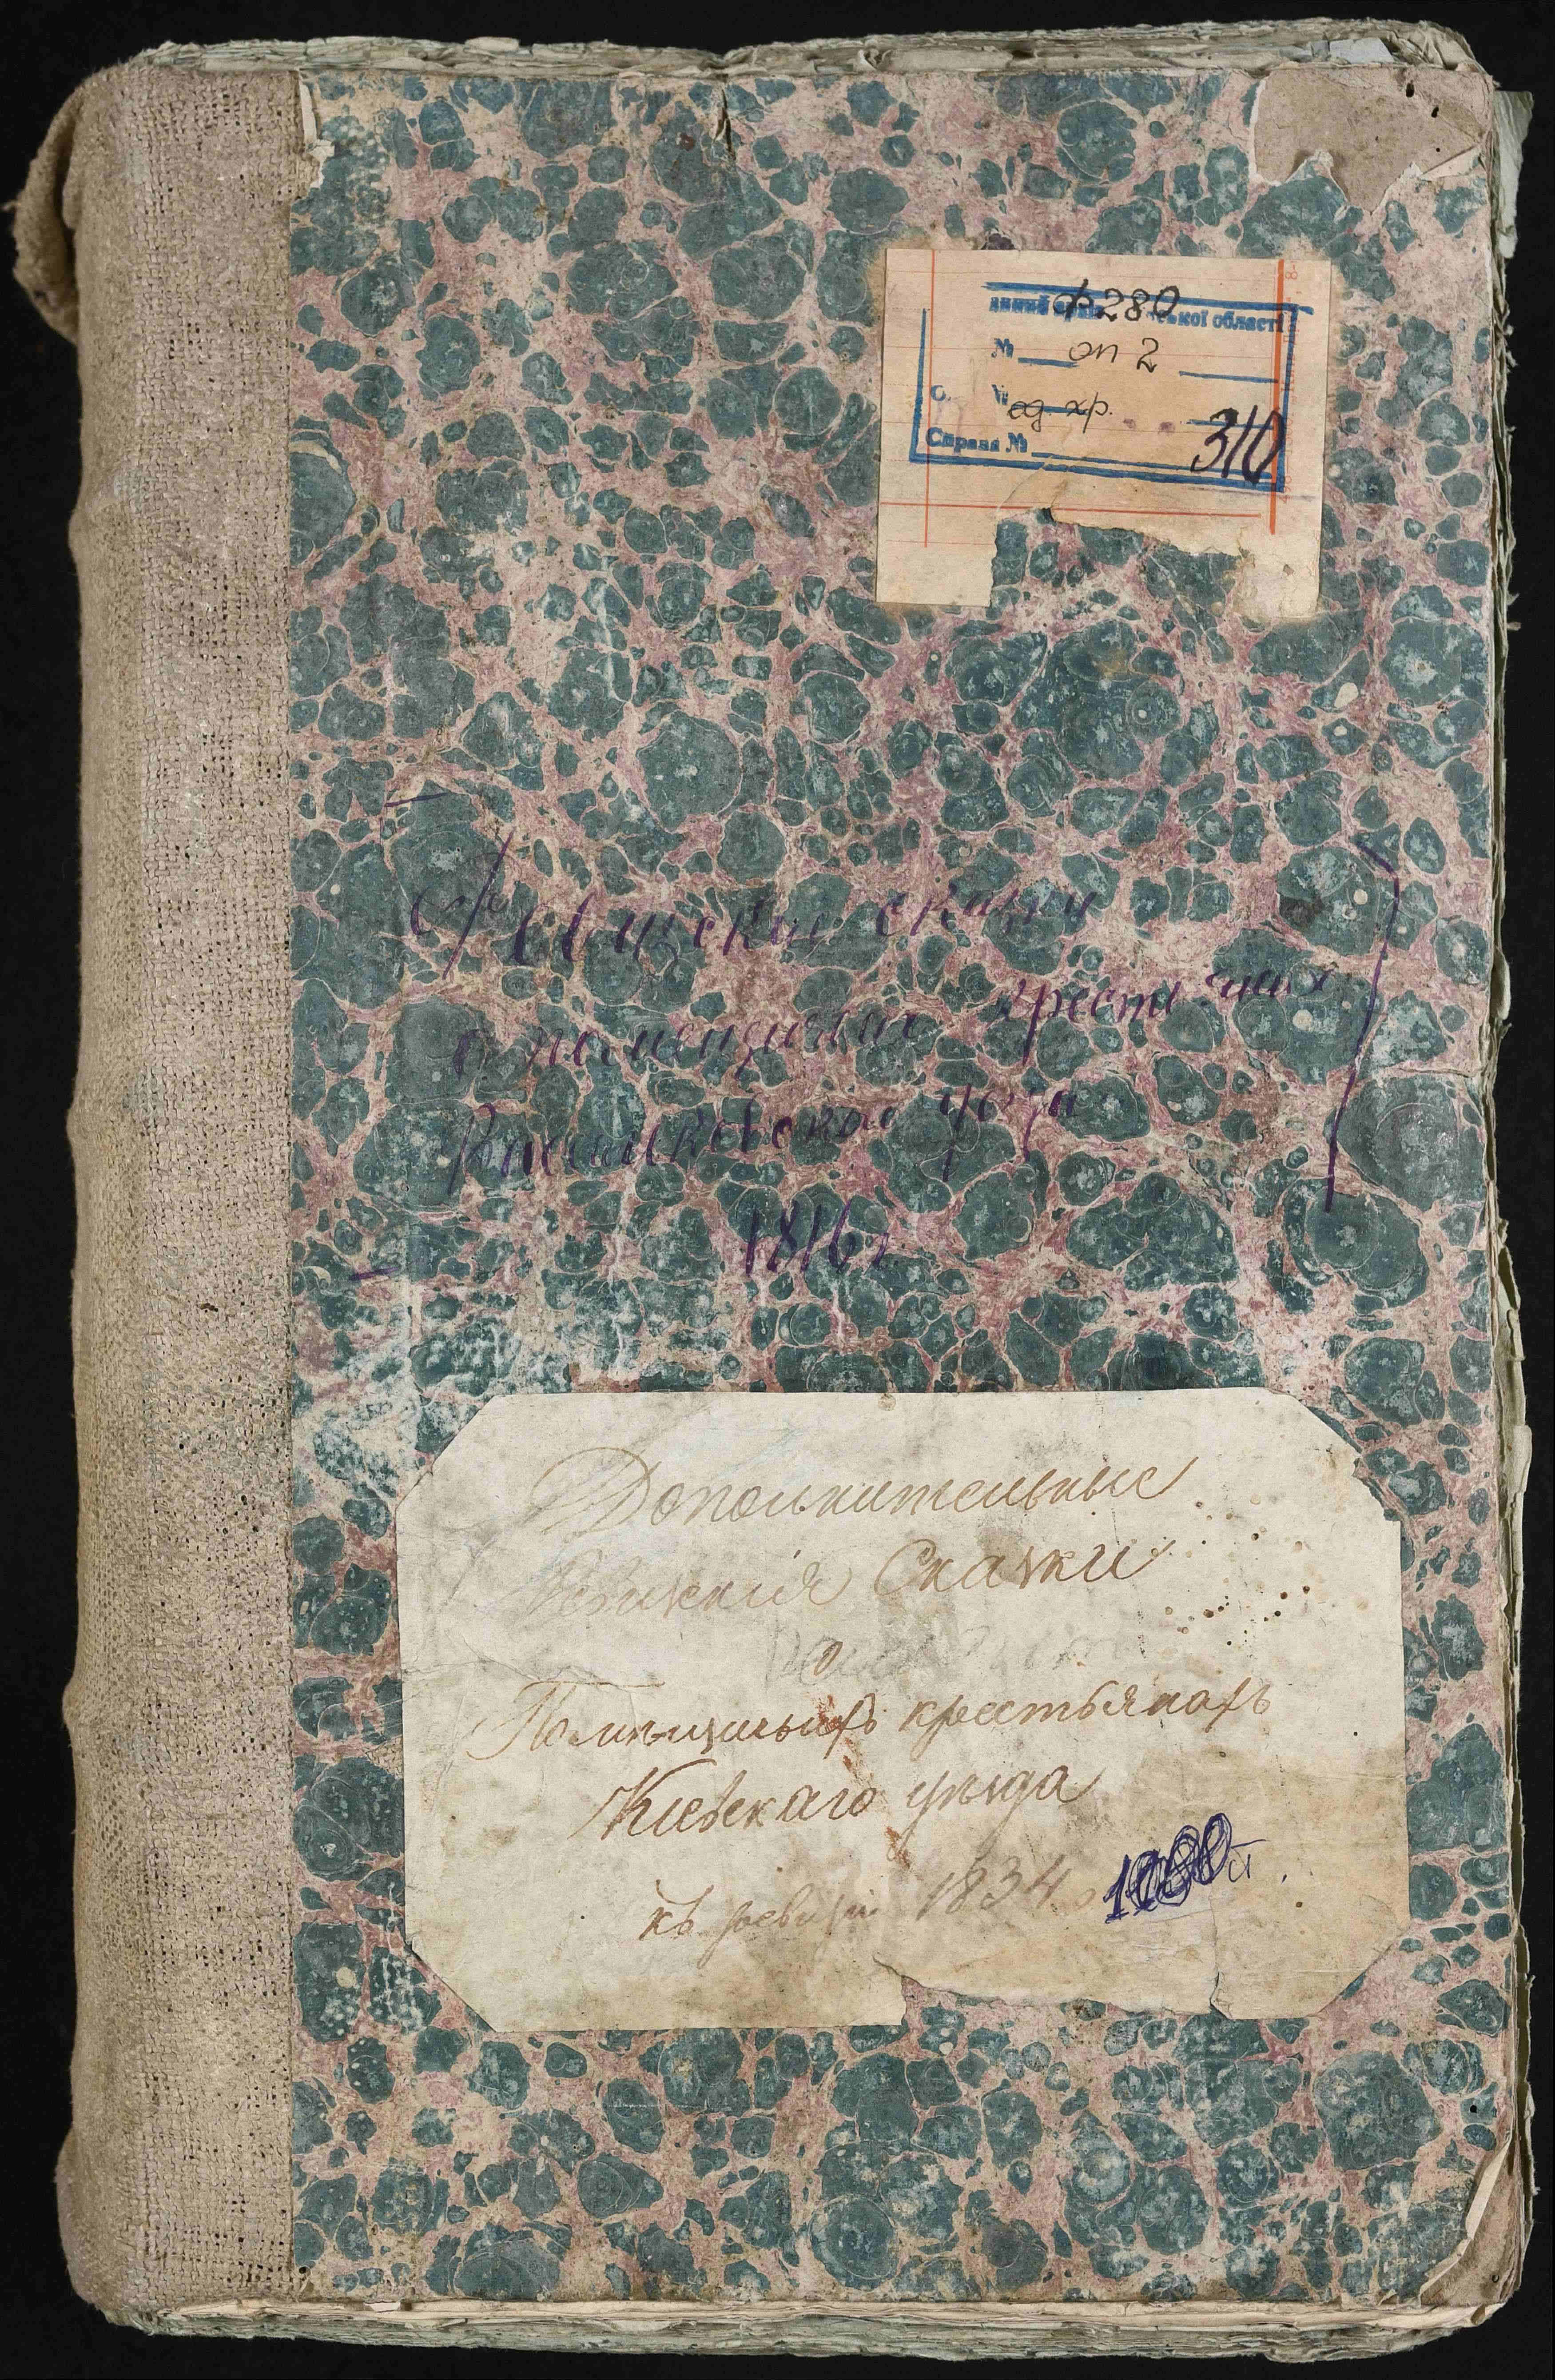 ф 280
кої області
№ оп 2
ед хр.
Справа № 310
Ревизские сказки
о помещичьих крестьянах
Васильковского уезда
1816 г
Дополнительные
Ревизскія Сказки
о
Помѣщичьихъ крестьянахъ
Кіевскаго уѣзда
къ ревизіи 1834